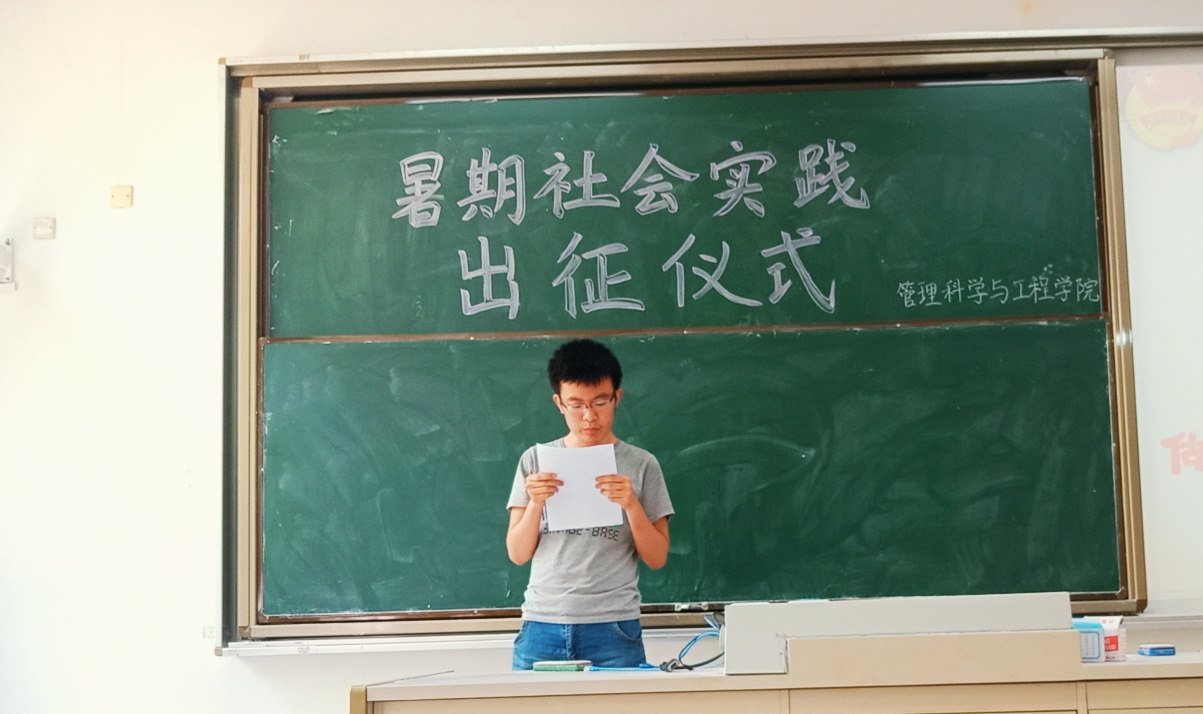 暑期社会实践
出征仪式
管理科学与工程学院
BASE
做